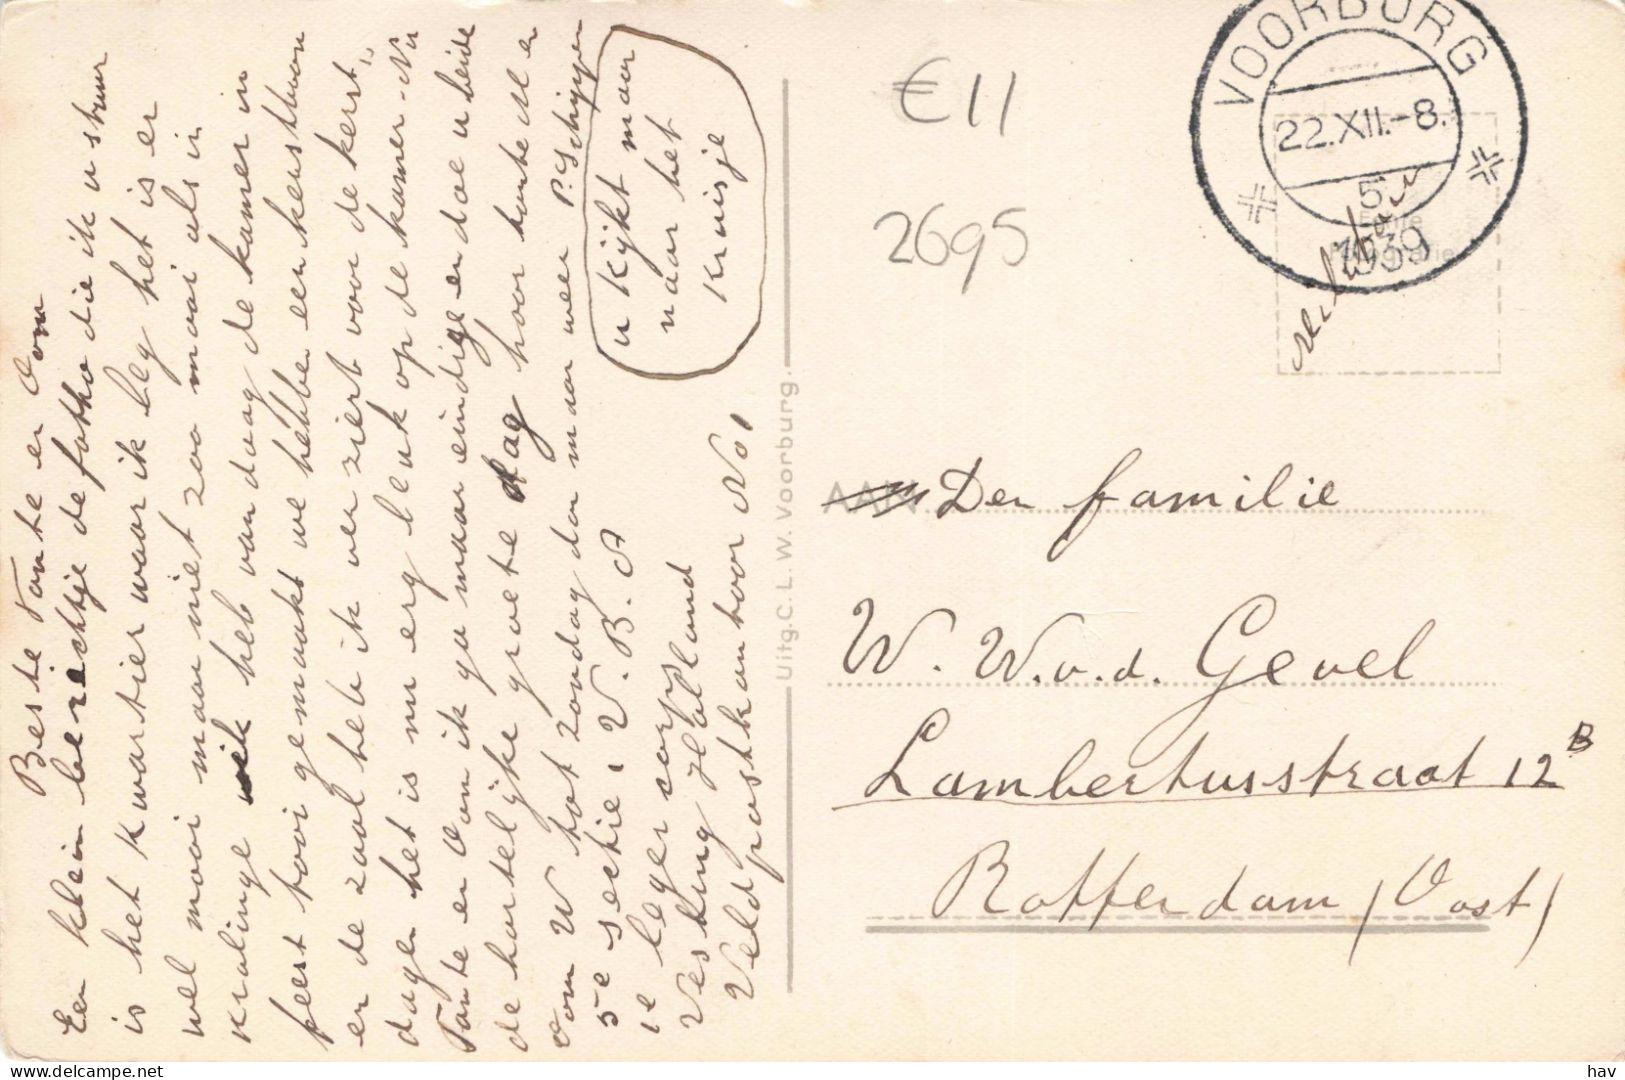 Beste Tante en Oom
Een klein berichtje de fotho die ik u stuur
is het kwartier waar ik leg het is er
wel mooi maar niet zoo mooi als in
Kralinge ik heb van daag de kamer in
feest tooi gemaakt we hebben een kerstboom
en de zaal heb ik ver ziert voor de kerst
dagen het is nu erg leuk op de kamer. Nu
Tante en Oom ik ga maar eindige en doe u beide
de hartelijke groete dag hoor tante M en
Oom W tot zondag dan maar weer P. Schippen
5e sectie 1 V. B. A
1e leger corps
Vesting Holland
Veldpostkantoor No 1
u kijkt maar
naar het
kruisje
Uitg. C. L. W. Voorburg.
€ 11
2695
VOORBURG
22.XII.-8.
5
1939
Echte
Fotografie
AAN
Den familie
W. W. v. d. Gevel
Lambertusstraat 12 B
Rotterdam (Oost)
hav